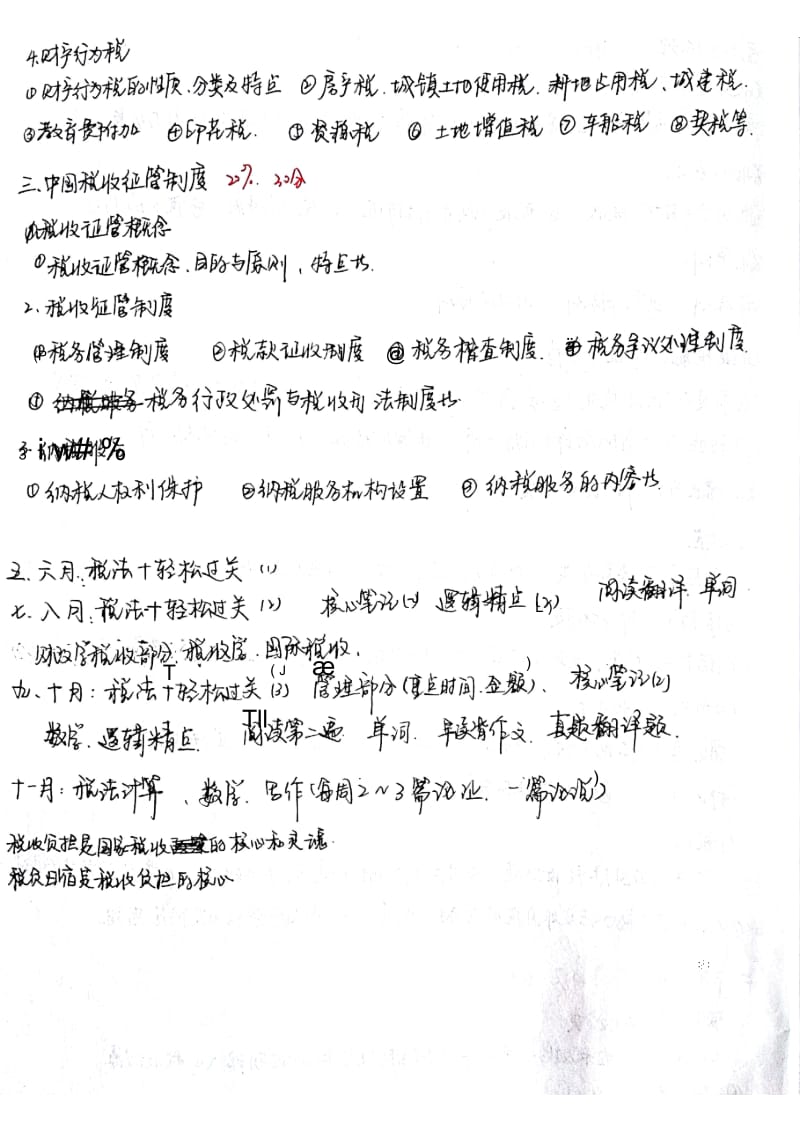 4.财产行为税
①财产行为税的性质、分类及特点 ②房产税、城镇土地使用税、耕地占用税、城建税、
③教育费附加 ④印花税、 ⑤资源税 ⑥土地增值税 ⑦车船税 ⑧契税等、
三、中国税收征管制度 20% 30分
税收征管概念
①税收征管概念、目的与原则、特点等、
2、税收征管制度
①税务管理制度 ②税款征收制度 ③税务稽查制度、④税务争议处理制度、
⑤ 税务行政处罚与税收刑法制度等、
①纳税人权利保护 ②纳税服务机构设置 ③纳税服务的内容等、
五、六月:税法+轻松过关(1)
七、八月:税法+轻松过关(2) 核心笔记(1) 逻辑精点 阅读翻译 单词
财政学税收部分、税收学、国际税收、
九、十月:税法+轻松过关(3) 管理部分(重点时间、金额)、 核心笔记(2)
数学、逻辑精点、 阅读第二遍 单词、 背作文、真题翻译题、
十一月:税法计算、数学、写作(每周2~3篇
税收负担是国家税收的核心和灵魂、
税负归宿是税收负担的核心